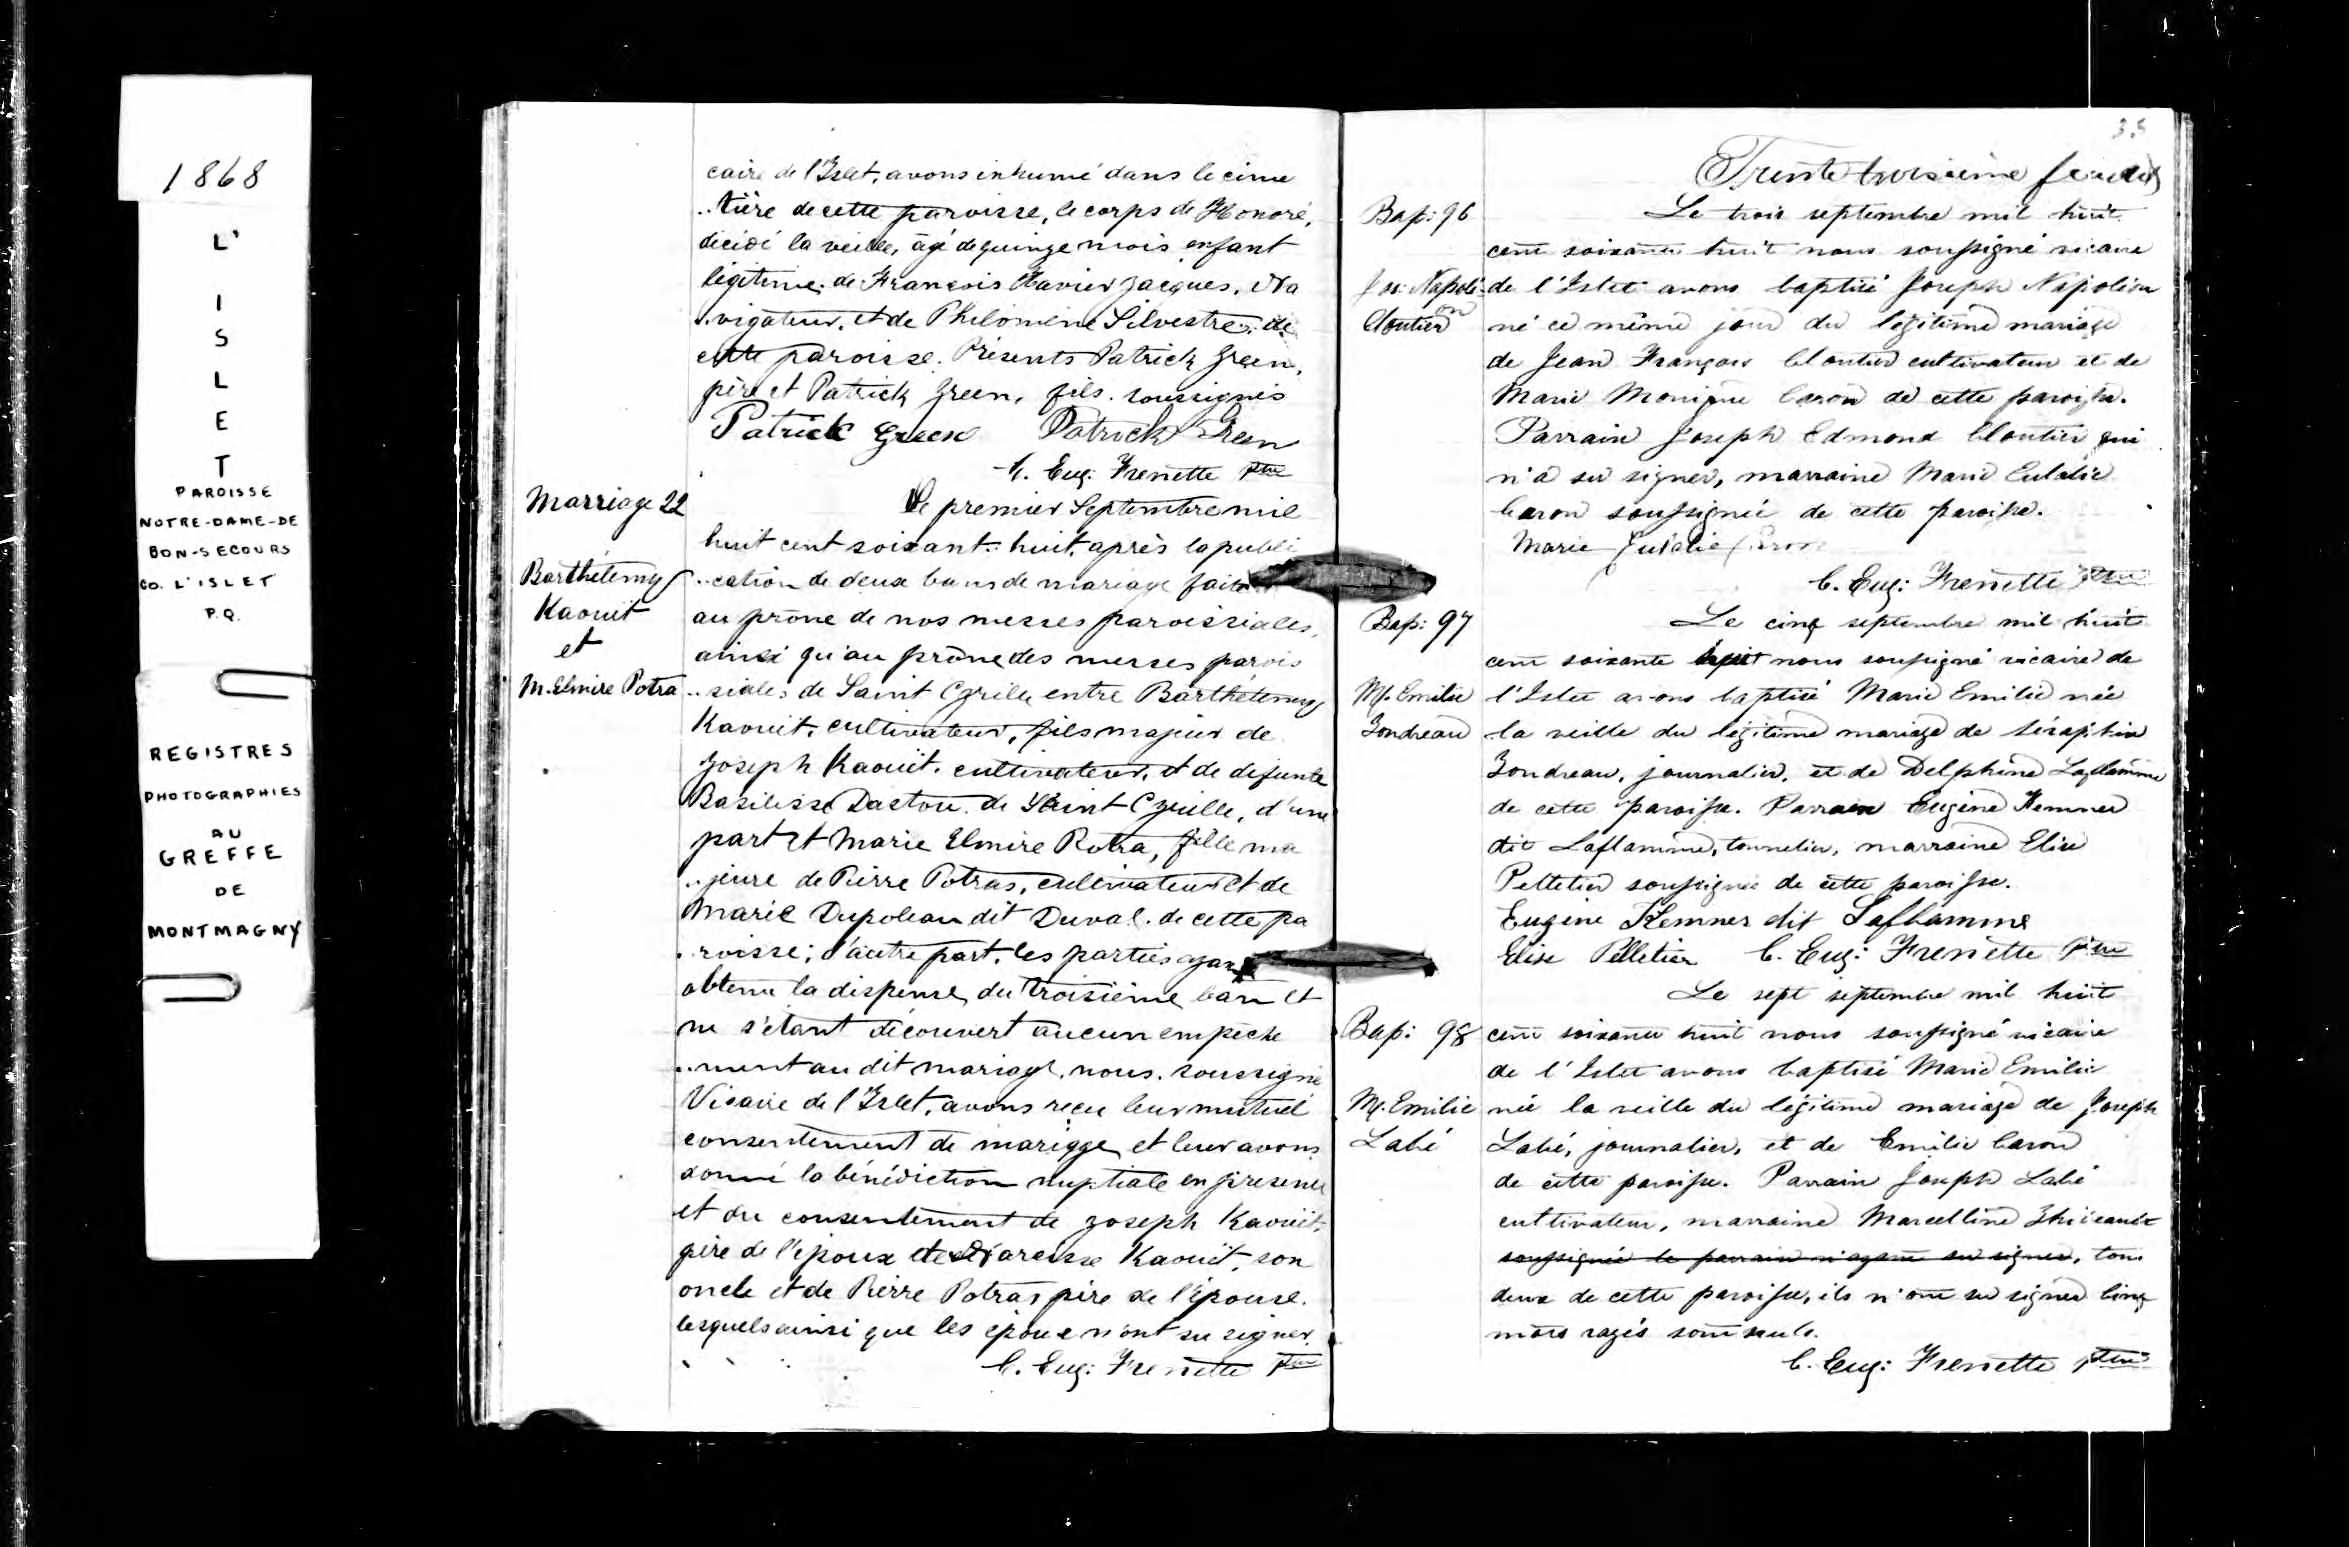 1868
L'
I
S
L
E
T
PAROISSE
NOTRE-DAME-DE
BON-SECOURS
CO. L'ISLET
P.Q.
REGISTRES
PHOTOGRAPHIES
AU
GREFFE
DE
MONTMAGNY
caire de l'Islet, avons inhumé dans le cime
..tière de cette paroisse, le corps de Honoré,
décédé la veille, âgé de quinze mois enfant
légitime de François Xavier Jacques, Na
..vigateur, et de Philomène Silvestre, de
cette paroisse. Présents Patrick Green,
père et Patrick Green, fils. soussignés
Patrick Green Patrick Green
C. Eug: Frenette Ptre
Marriage 22
Barthélemy
Kaouit
et
M. Elmire Potra
Le premier Septembre mil
huit cent soixante huit, après la publi
..cation de deux bans de mariage faite
au prône de nos messes paroissiales,
ainsi qu'au prône des messes parois
..siales de Saint Cyrille entre Barthélemy
Kaouit, cultivateur, fils majeur de
Joseph Kaouit, cultivateur, et de défunte
Basilisse Dastou de Saint Cyrille, d'une
part et Marie Elmire Potra, fille ma
..jeure de Pierre Potras, cultivateur et de
Marie Dupoleau dit Duval de cette pa
..roisse; d'autre part, les parties ayant
obtenu la dispense du troisième ban et
ne s'étant découvert aucun empêche
..ment au dit mariage, nous, soussigné
Vicaire de l'Islet, avons reçu leur mutuel
consentement de mariage et leur avons
donné la bénédiction nuptiale en présence
et du consentement de Joseph Kaouit,
père de l'époux et de Kaouit, son
oncle et de Pierre Potras père de l'épouse.
lesquels ainsi que les époux n'ont su signer.
C. Eug: Frenette Ptre
35
Trente troisième feuillet
Bap: 96
Jos: Napolé
on
Cloutier
Le trois septembre mil huit
cent soixante huit nous soussigné vicaire
de l'Islet avons baptisé Joseph Napoléon
né ce même jour du légitime mariage
de Jean François Cloutier cultivateur et de
Marie Monique Caron de cette paroisse.
Parrain Joseph Edmond Cloutier qui
n'a su signer, marraine Marie Eulalie
Caron soussignée de cette paroisse.
Marie Eulalie Caron
C. Eug: Frenette Ptre
Bap: 97
M. Emilie
Gondreau
Le cinq septembre mil huit
cent soixante huit nous soussigné vicaire de
l'Islet avons baptisé Marie Emilie née
la veille du légitime mariage de Séraphin
Gondreau, journalier, et de Delphine Laflamme
de cette paroisse. Parrain Eugène Kemner
dit Laflamme, tonnelier, marraine Elise
Pelletier soussignés de cette paroisse.
Eugène Kemner dit Laflamme
Elise Pelletier C. Eug: Frenette Ptre
Bap: 98
M. Emilie
Labé
Le sept septembre mil huit
cent soixante huit nous soussigné vicaire
de l'Islet avons baptisé Marie Emilie
née la veille du légitime mariage de Joseph
Labé, journalier, et de Emilie Caron
de cette paroisse. Parrain Joseph Labé
cultivateur, marraine Marcelline
soussignée le parrain n'ayant su signer, tous
deux de cette paroisse, ils n'ont su signer Cinq
mots rayés sont nuls.
C. Eug: Frenette Ptre